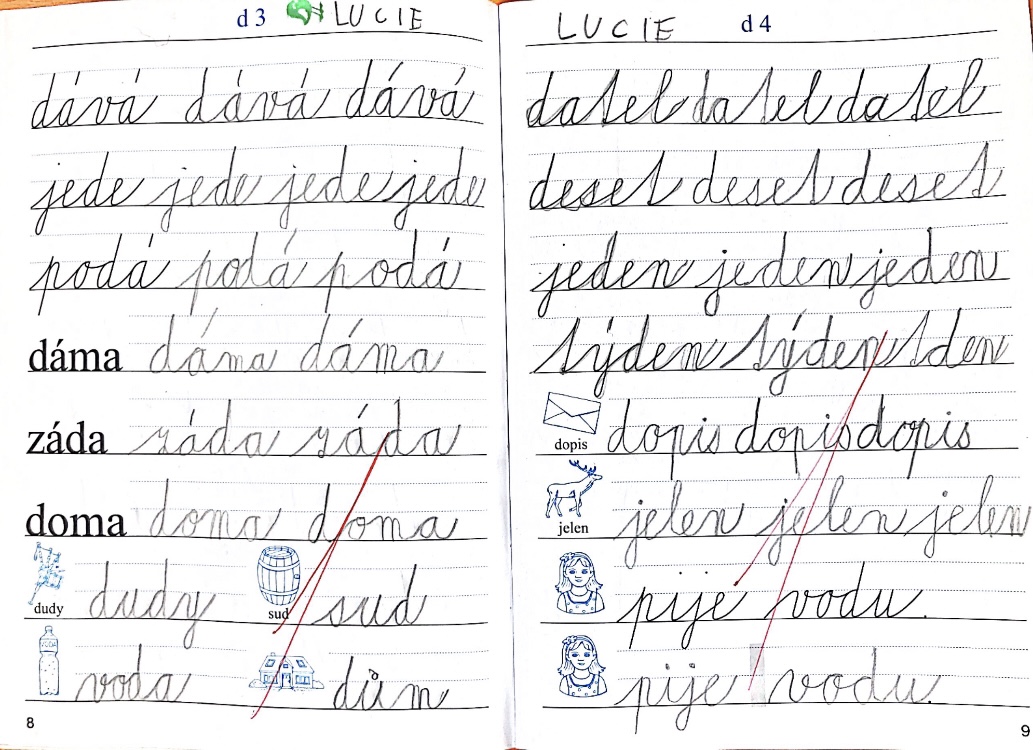 d 3 LUCIE
dává dává dává
jede jede jede jede
podá podá podá
dáma dáma dáma
záda záda záda
doma doma doma
dudy dudy sud sud
VODA voda dům
8
LUCIE d 4
datel datel datel
deset deset deset
jeden jeden jeden
týden týden tden
dopis dopis dopis dopis
jelen jelen jelen jelen
pije vodu.
pije vodu.
9